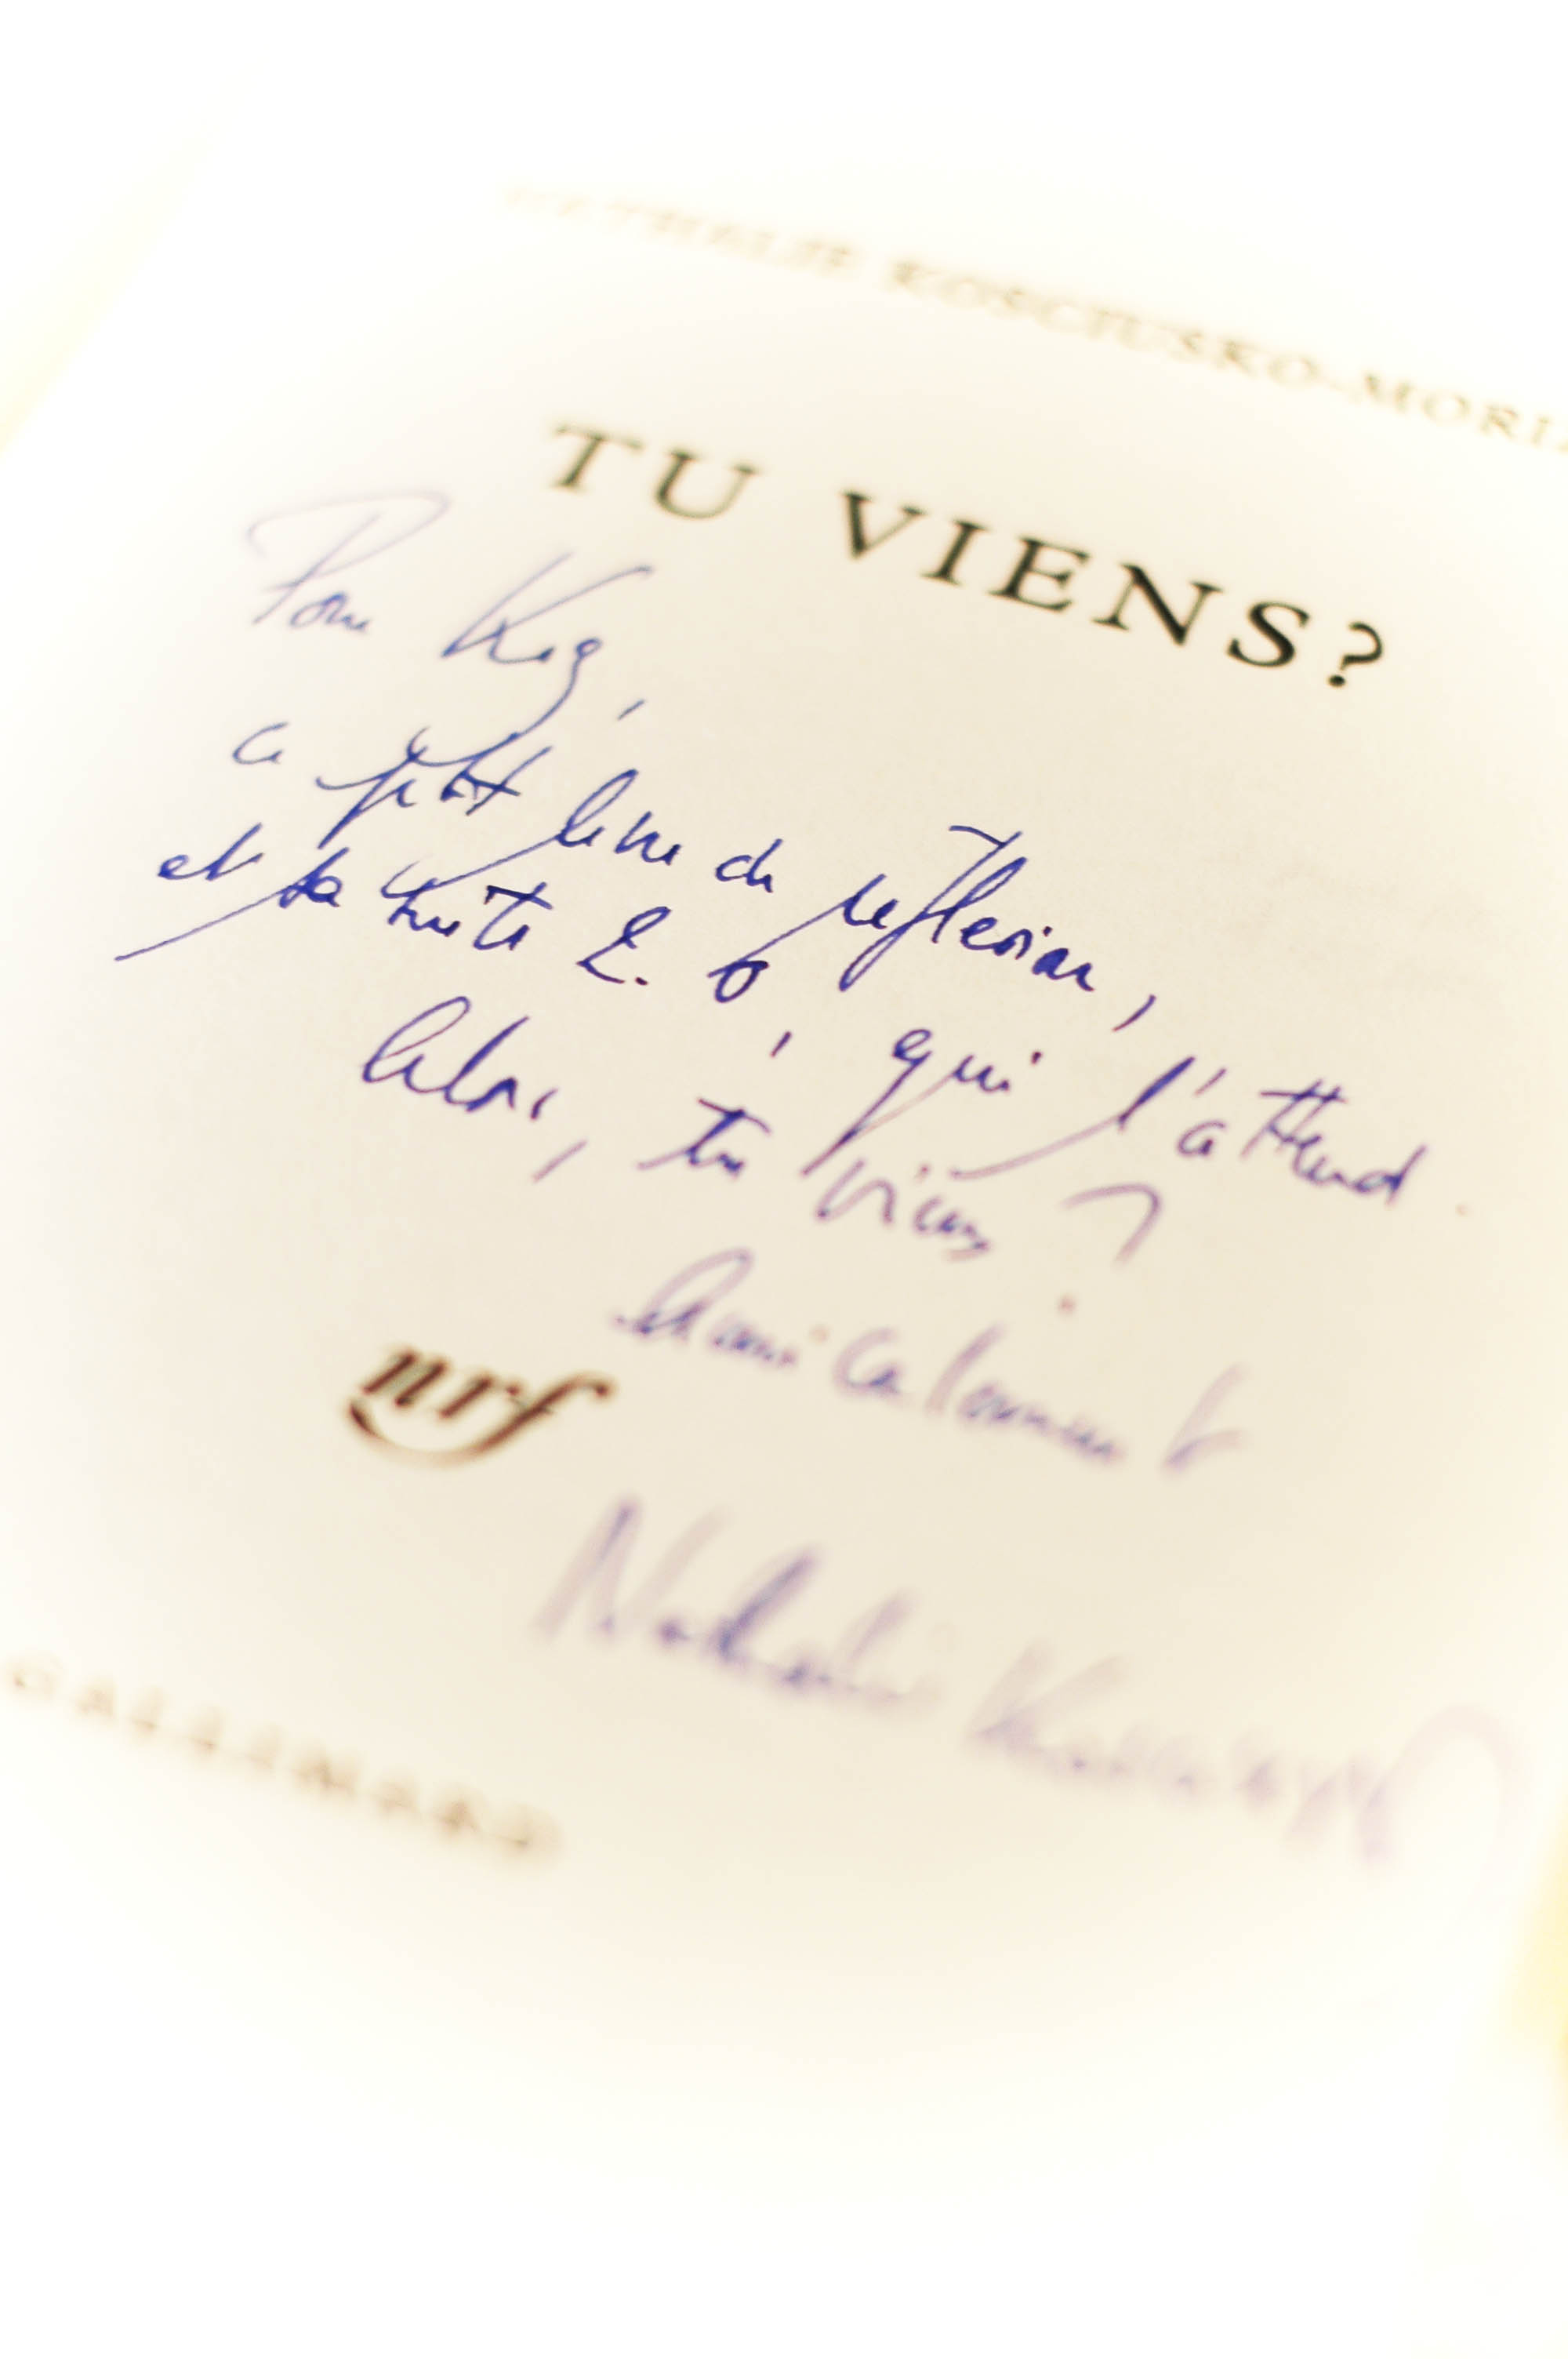 NATHALIE KOSCIUSKO-MORIZ
TU VIENS?
Pour Kag,
ce petit livre de réflexion,
et sa suite 2.0, qui l'attend.
Alors, tu viens ?
Amicalement
nrf
Nathalie
GALLIMARD